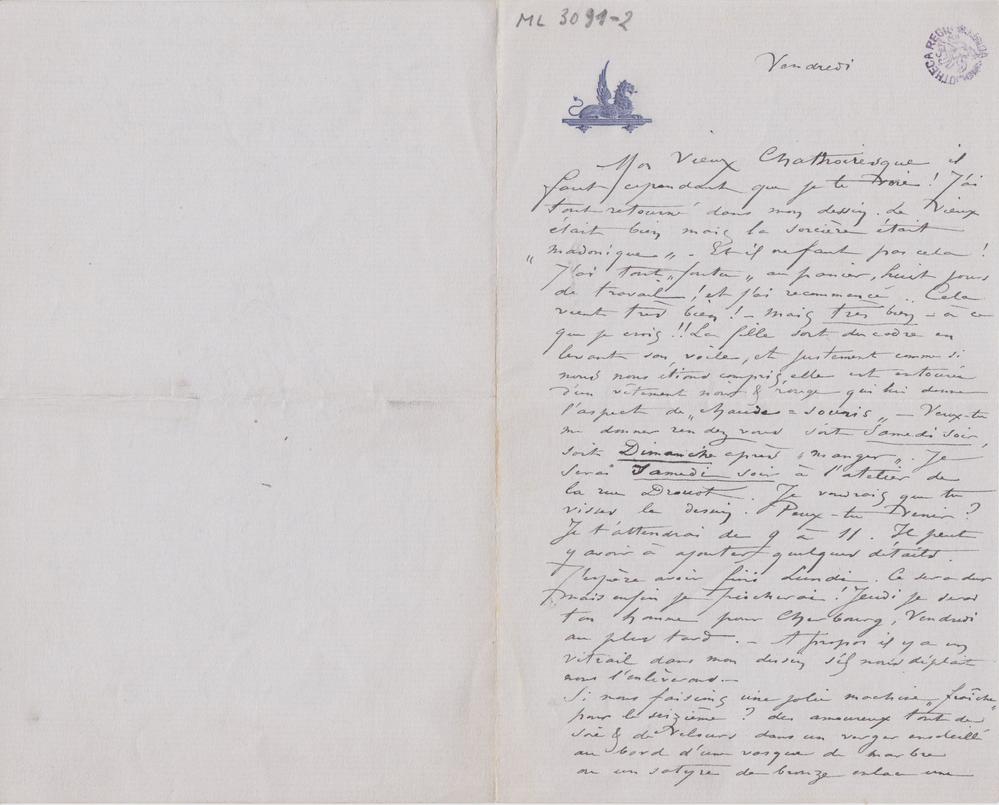 ML 3091-2
Vendredi
Mon Vieux Chatnoiresque il
faut cependant que je te voie ! J'ai
tout retourné dans mon dessin. Le Vieux
était bien mais la sorcière était
„ madonique „ . Et il ne faut pas cela !
J'ai tout „ foutu „ au panier, huit jours
de travail ! et j'ai recommencé .. Cela
vient très bien ! - mais très bien - à ce
que je crois !! La fille sort du cadre en
levant son voile, et justement comme si
nous nous étions compris, elle est entourée
d'un vêtement noir & rouge qui lui donne
l'aspect de „ chaude = souris „ - Veux-tu
me donner rendez vous soit Samedi soir,
soit Dimanche après „ manger „ . Je
serai Samedi soir à l'atelier de
la rue Drouot. Je voudrais que tu
visses le dessin. Peux-tu venir ?
Je t'attendrai de 9 à 11. Il peut
y avoir à ajouter quelques détails.
J'espère avoir fini Lundi. Ce sera dur
mais enfin je piocherai ! Jeudi je serai
ton homme pour Cherbourg, Vendredi
au plus tard. - A propos il y a un
vitrail dans mon dessin s'il nous déplait
nous l'enlèverons -
Si nous faisions une jolie machine „ fraîche „
pour le seizième ? des amoureux tout de
soie & de Velours dans un verger ensoleillé
au bord d'une vasque de marbre
où un satyre de bronze enlace une